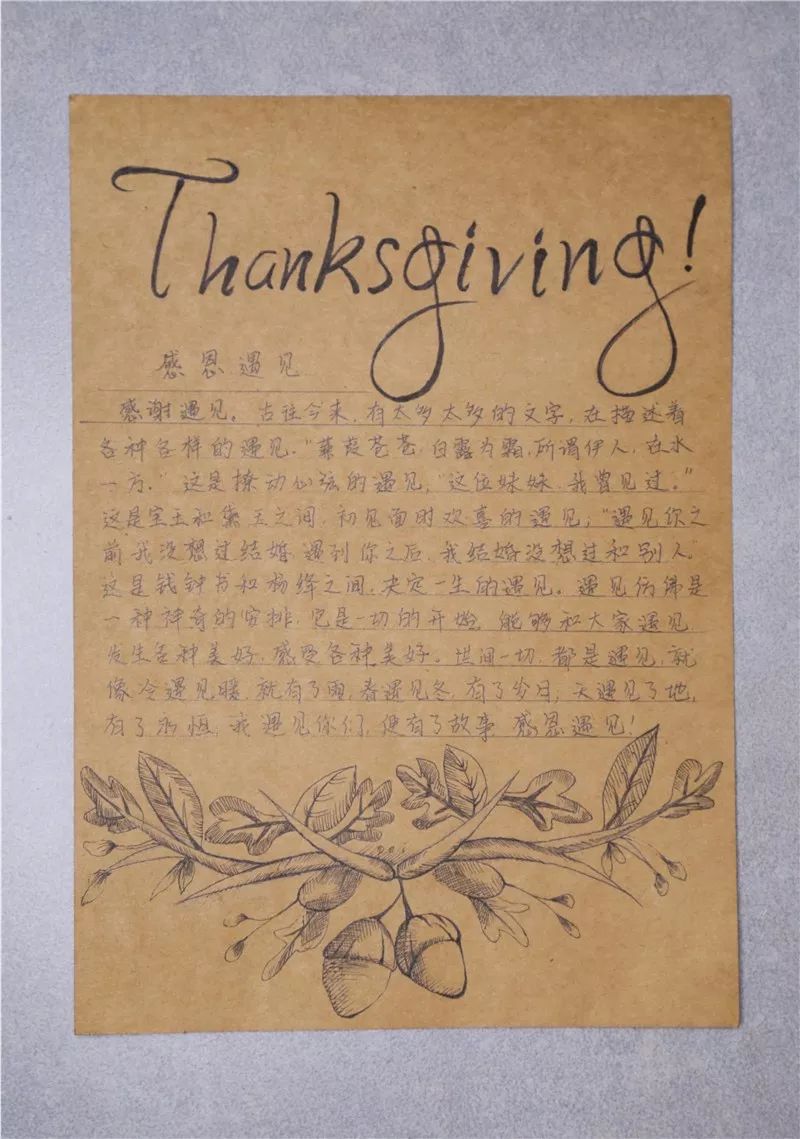 Thanksgiving!
感恩遇见
感谢遇见。古往今来,有太多太多的文字,在描述着
各种各样的遇见。"蒹葭苍苍,白露为霜,所谓伊人,在水
一方。"这是撩动心弦的遇见,"这位妹妹,我曾见过。"
这是宝玉和黛玉之间,初见面时欢喜的遇见;"遇见你之
前我没想过结婚,遇到你之后,我结婚没想过和别人"
这是钱钟书和杨绛之间,决定一生的遇见。遇见仿佛是
一种神奇的安排,它是一切的开始。能够和大家遇见,
发生各种美好,感受各种美好。世间一切,都是遇见,就
像冷遇见暖,就有了雨,春遇见冬,有了岁日,天遇见了地,
有了永恒,我遇见你们,便有了故事 感恩遇见!